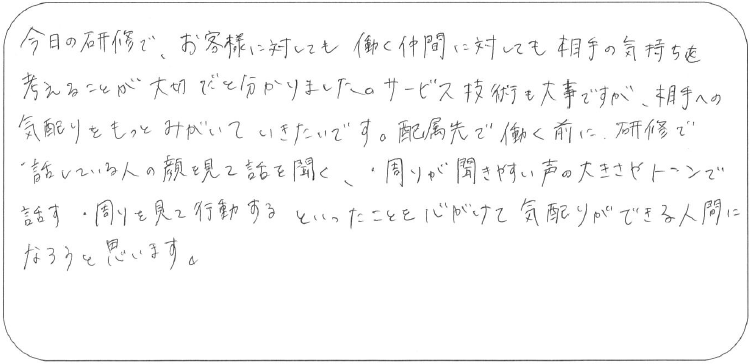 今日の研修で、お客様に対しても働く仲間に対しても相手の気持ちを
考えることが大切だと分かりました。サービス技術も大事ですが、相手への
気配りをもっとみがいていきたいです。配属先で働く前に、研修で
・話している人の顔を見て話を聞く、・周りが聞きやすい声の大きさやトーンで
話す・周りを見て行動するといったことを心がけて気配りができる人間に
なろうと思います。